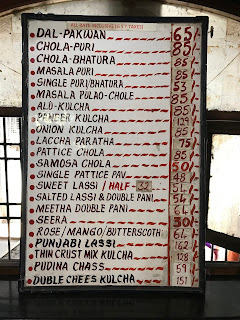 ALL RATE INCLUSIVE OF TAXES
DAL-PAKWAN 65/-
CHOLA-PURI 85/-
CHOLA-BHATURA 85/-
MASALA PURI 85/-
SINGLE PURI/BHATURA 53/-
MASALA PULAO-CHOLE 85/-
ALU-KULCHA 85/-
PANEER KULCHA 139/-
ONION KULCHA 85/-
LACCHA PARATHA 75/-
PATTICE CHOLA 85/-
SAMOSA CHOLA 50/-
SINGLE PATTICE PAV 48/-
SWEET LASSI / HALF - 32 54/-
SALTED LASSI & DOUBLE PANI 54/-
MEETHA DOUBLE PANI 64/-
SEERA 50/-
ROSE/MANGO/BUTTERSCOTH 64/-
PUNJABI LASSI 162/-
THIN CRUST MIX KULCHA 128/-
PUDINA CHASS 59/-
DUBLE CHEES KULCHA 151/-